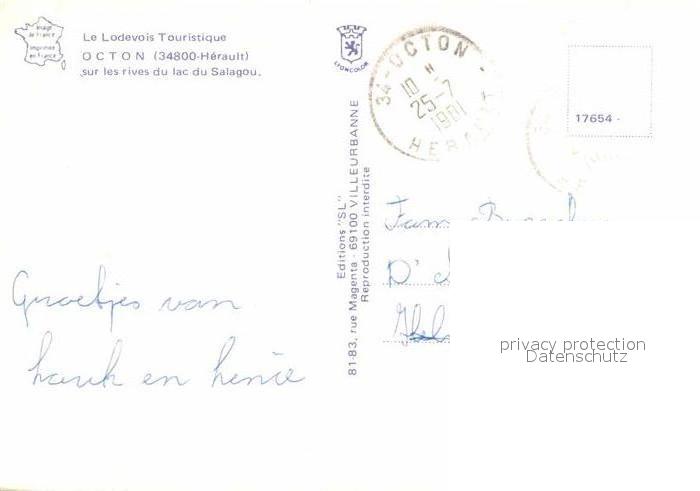 Image
de France
Imprimée
en France
Le Lodevois Touristique
OCTON (34800-Hérault)
sur les rives du lac du Salagou.
LYONCOLOR
34-OCTON
10 H
25-7
1981
HERAULT
17654 -
Editions "SL"
81-83, rue Magenta - 69100 VILLEURBANNE
Reproduction interdite
Groetjes van
en henie
Fam
D'
privacy protection
Datenschutz